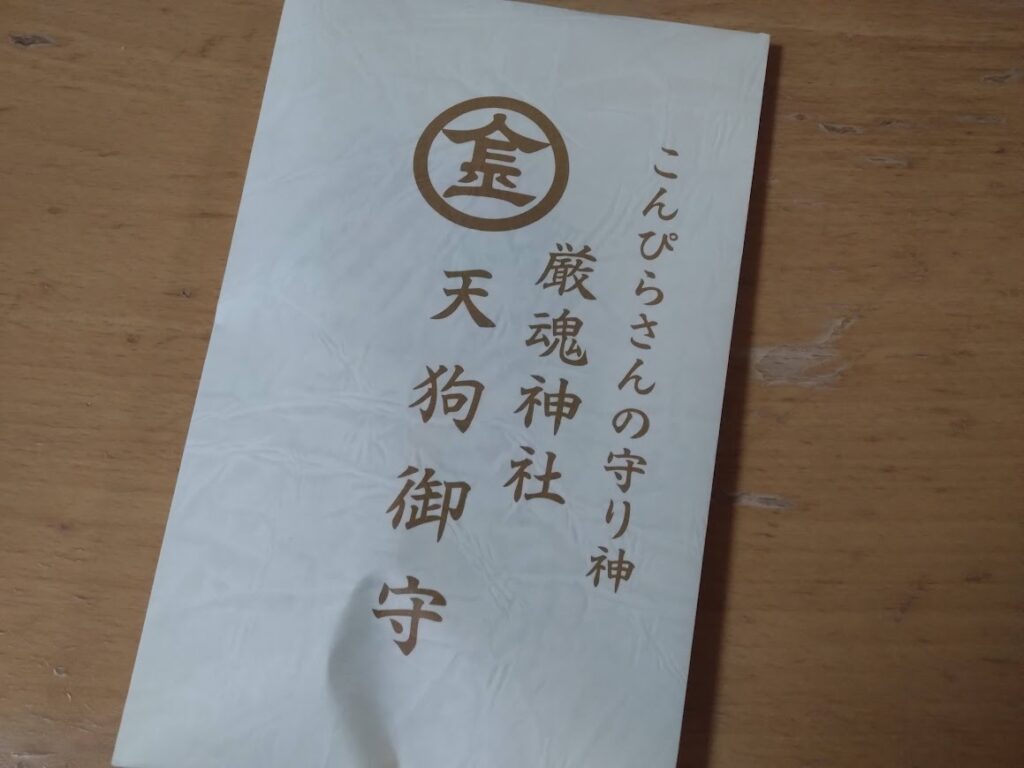 こんぴらさんの守り神
厳魂神社
金
天狗御守